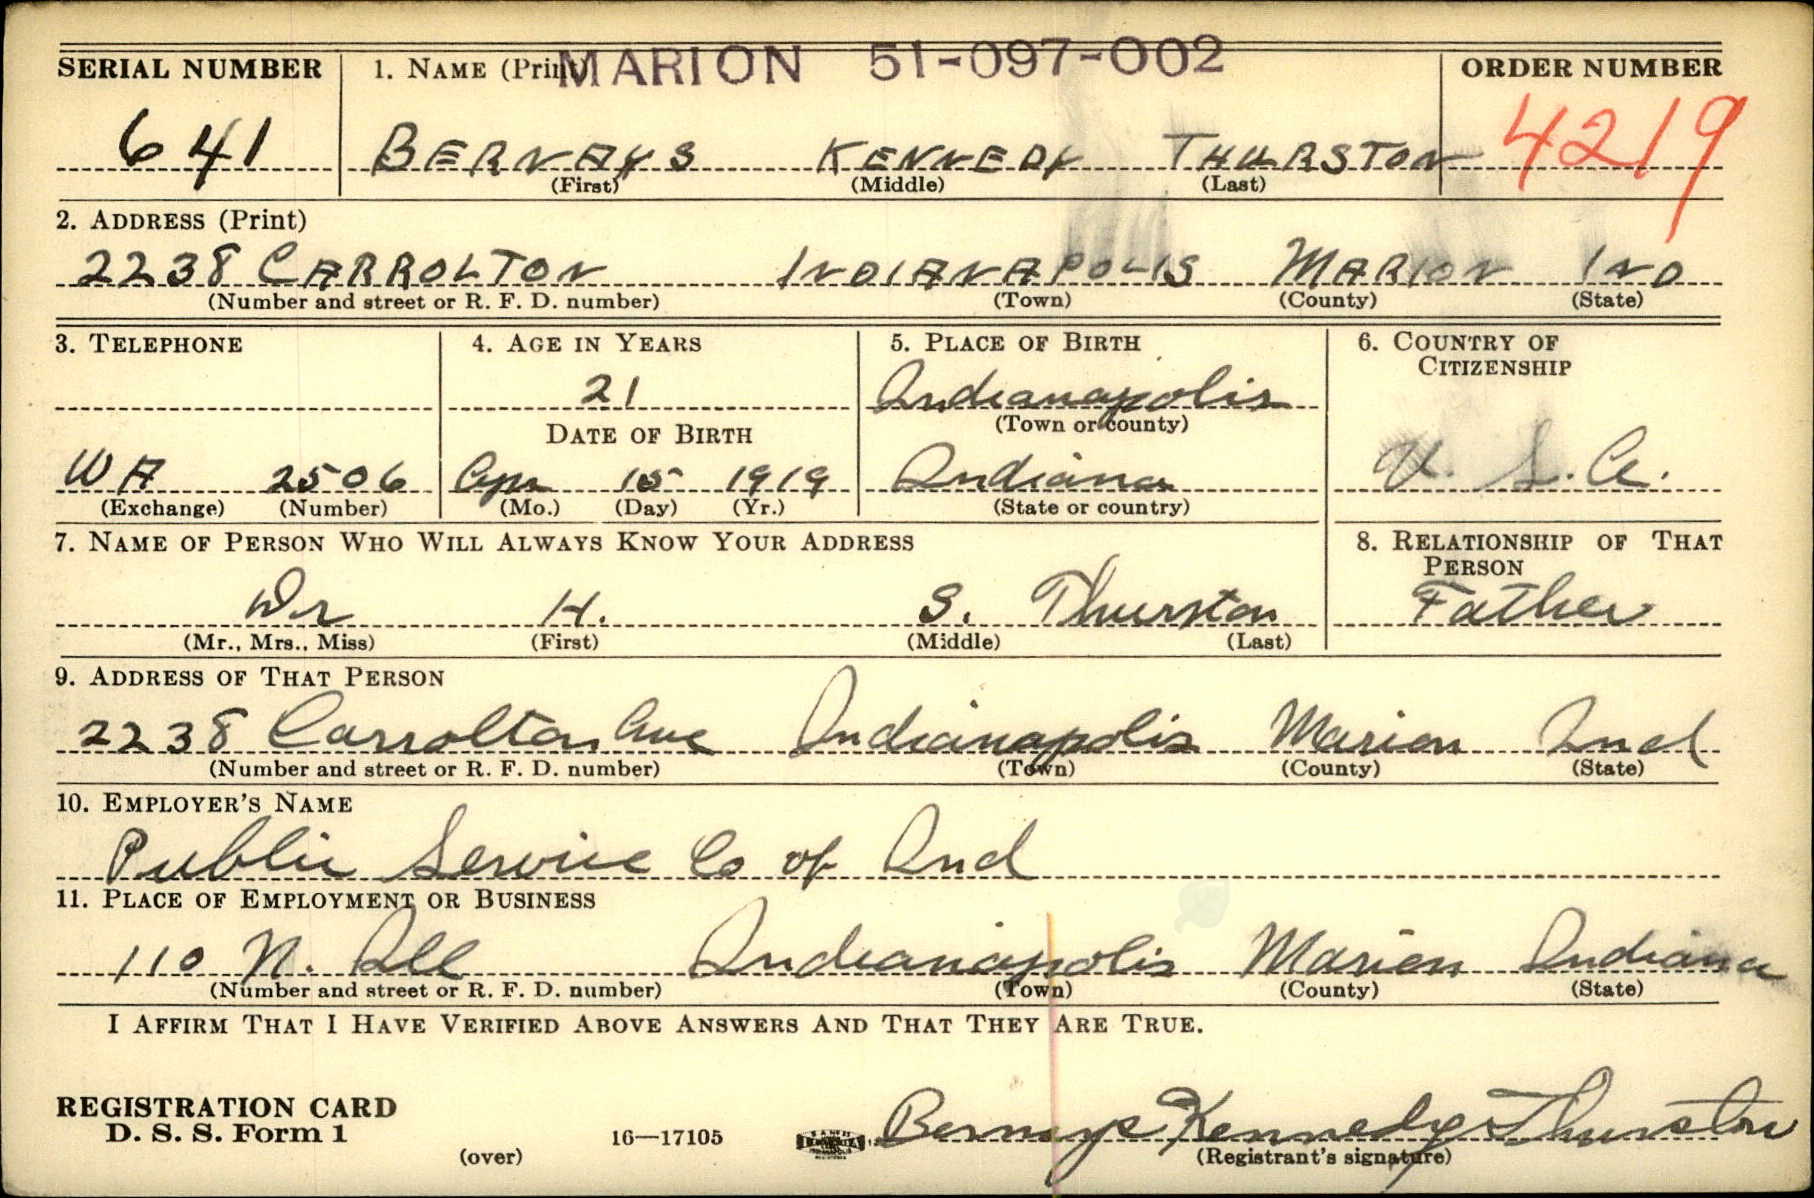 MARION 51-097-002
SERIAL NUMBER 1. NAME (Print) ORDER NUMBER
641 BERNAYS KENNEDY THURSTON 4219
(First) (Middle) (Last)
2. ADDRESS (Print)
2238 CARROLTON INDIANAPOLIS MARION IND
(Number and street or R. F. D. number) (Town) (County) (State)
3. TELEPHONE 4. AGE IN YEARS 5. PLACE OF BIRTH 6. COUNTRY OF CITIZENSHIP
21 Indianapolis
(Town or county)
DATE OF BIRTH
WA 2506 Apr 15 1919 Indiana U. S. A.
(Exchange) (Number) (Mo.) (Day) (Yr.) (State or country)
7. NAME OF PERSON WHO WILL ALWAYS KNOW YOUR ADDRESS 8. RELATIONSHIP OF THAT PERSON
Dr H. S. Thurston Father
(Mr., Mrs., Miss) (First) (Middle) (Last)
9. ADDRESS OF THAT PERSON
2238 Carrolton Ave Indianapolis Marion Ind
(Number and street or R. F. D. number) (Town) (County) (State)
10. EMPLOYER'S NAME
Public Service Co of Ind
11. PLACE OF EMPLOYMENT OR BUSINESS
110 N. Ill Indianapolis Marion Indiana
(Number and street or R. F. D. number) (Town) (County) (State)
I AFFIRM THAT I HAVE VERIFIED ABOVE ANSWERS AND THAT THEY ARE TRUE.
REGISTRATION CARD
D. S. S. Form 1 16—17105 Bernays Kennedy Thurston
(over) (Registrant's signature)